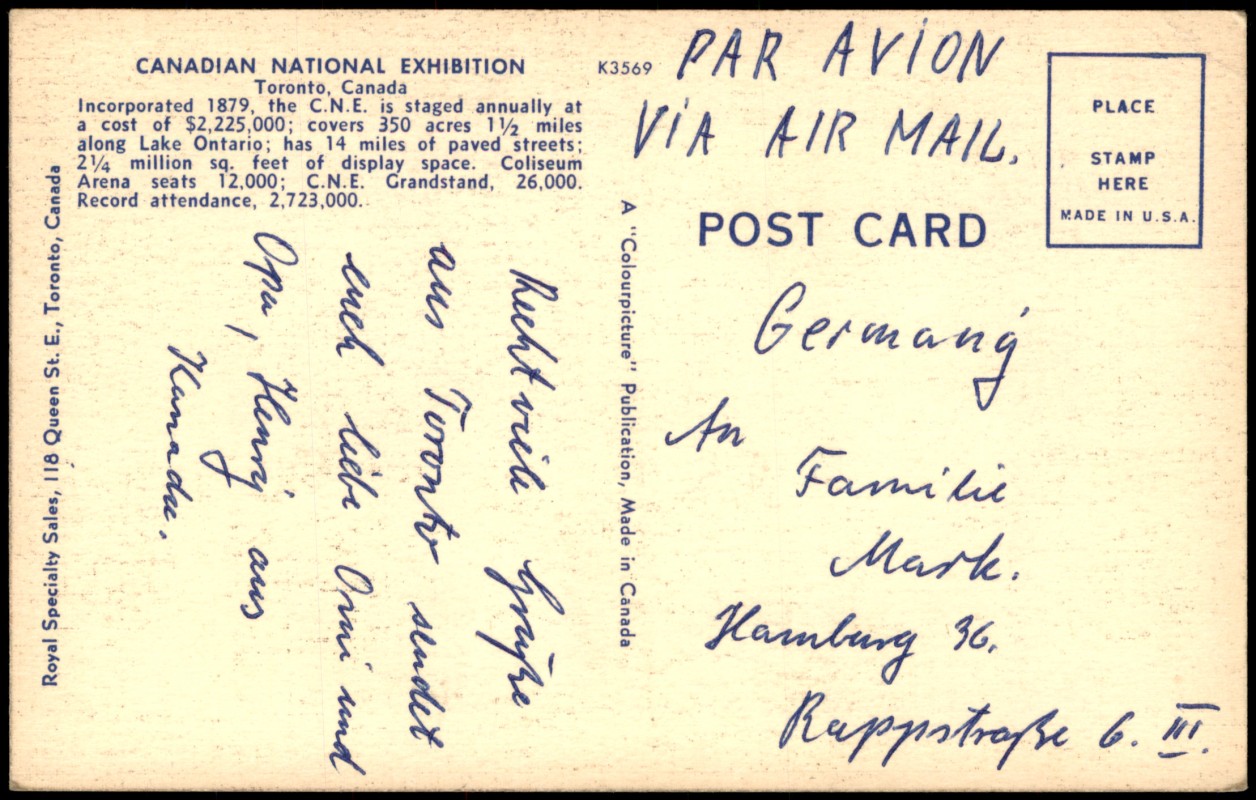 CANADIAN NATIONAL EXHIBITION
Toronto, Canada
Incorporated 1879, the C.N.E. is staged annually at
a cost of $2,225,000; covers 350 acres 1½ miles
along Lake Ontario; has 14 miles of paved streets;
2¼ million sq. feet of display space. Coliseum
Arena seats 12,000; C.N.E. Grandstand, 26,000.
Record attendance, 2,723,000.
K3569
PAR AVION
VIA AIR MAIL.
PLACE
STAMP
HERE
MADE IN U.S.A.
POST CARD
Royal Specialty Sales, 118 Queen St. E., Toronto, Canada
A "Colourpicture" Publication, Made in Canada
Recht viele Grüße
aus Toronto sendet
euch liebe Omi und
Opa, Henry aus
Kanada.
Germany
An
Familie
Mark.
Hamburg 36.
Rappstraße 6. III.